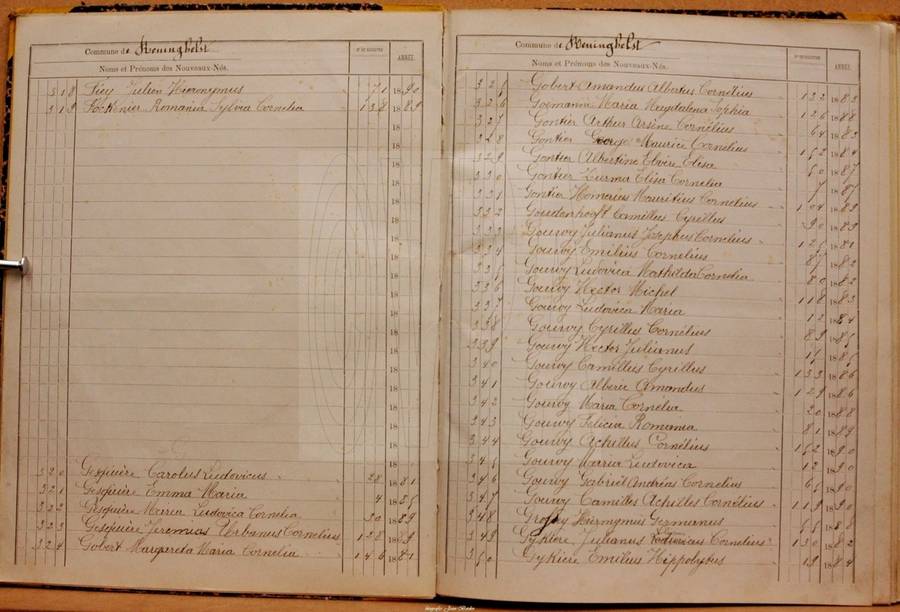 Commune de Reninghelst
N° DU REGISTRE
ANNÉE.
Noms et Prénoms des Nouveaux-Nés.
318 Fiey Julien Hieronymus 71 1890
319 Romania Sylvia Cornelia 138 1889
18
18
18
18
18
18
18
18
18
18
18
18
18
18
18
18
18
18
320 Gesquière Carolus Ludovicus 28 1881
321 Gesquière Emma Maria 4 1886
322 Gesquière Maria Ludovica Cornelia 30 1889
323 Gesquière Jeremias Urbanus Cornelius 128 1889
324 Gobert Margareta Maria Cornelia 146 1881
Commune de Reninghelst
N° DU REGISTRE
ANNÉE.
Noms et Prénoms des Nouveaux-Nés.
325 Gobert Amandus Albertus Cornelius 132 1883
326 Goemanne Maria Magdalena Sophia 126 1888
327 Gontier Arthur Arsène Cornélius 64 1883
328 Gontier George Maurice Cornelius 152 1884
329 Gontier Albertine Elvire Elisa 50 1887
330 Gontier Zurma Elisa Cornelia 7 1887
331 Gontier Homerius Mauritius Cornelius 104 1889
332 Camillus Cyrillus 90 1883
333 Gouwy Julianus Josephus Cornelius 126 1881
334 Gouwy Emilius Cornelius 87 1882
335 Gouwy Ludovica Mathilda Cornelia 80 1882
336 Gouwy Hector Michel 118 1883
337 Gouwy Ludovica Maria 12 1884
338 Gouwy Cyrillus Cornélius 89 1885
339 Gouwy Hector Julianus 15 1885
340 Gouwy Camillus Cyrillus 133 1886
341 Gouwy Alberic Amandus 129 1886
342 Gouwy Maria Cornelia 20 1888
343 Gouwy Felicia Romania 81 1889
344 Gouwy Achilles Cornélius 152 1890
345 Gouwy Maria Ludovica 12 1890
346 Gouwy Gabriel Andréas Cornelius 65 1890
347 Gouwy Camilles Achilles Cornélius 119 1890
348 Hiermymus Germanus 55 1888
349 Gykiere Julianus Cornelius 130 1882
350 Gykiere Emilius Hippolytus 19 1884